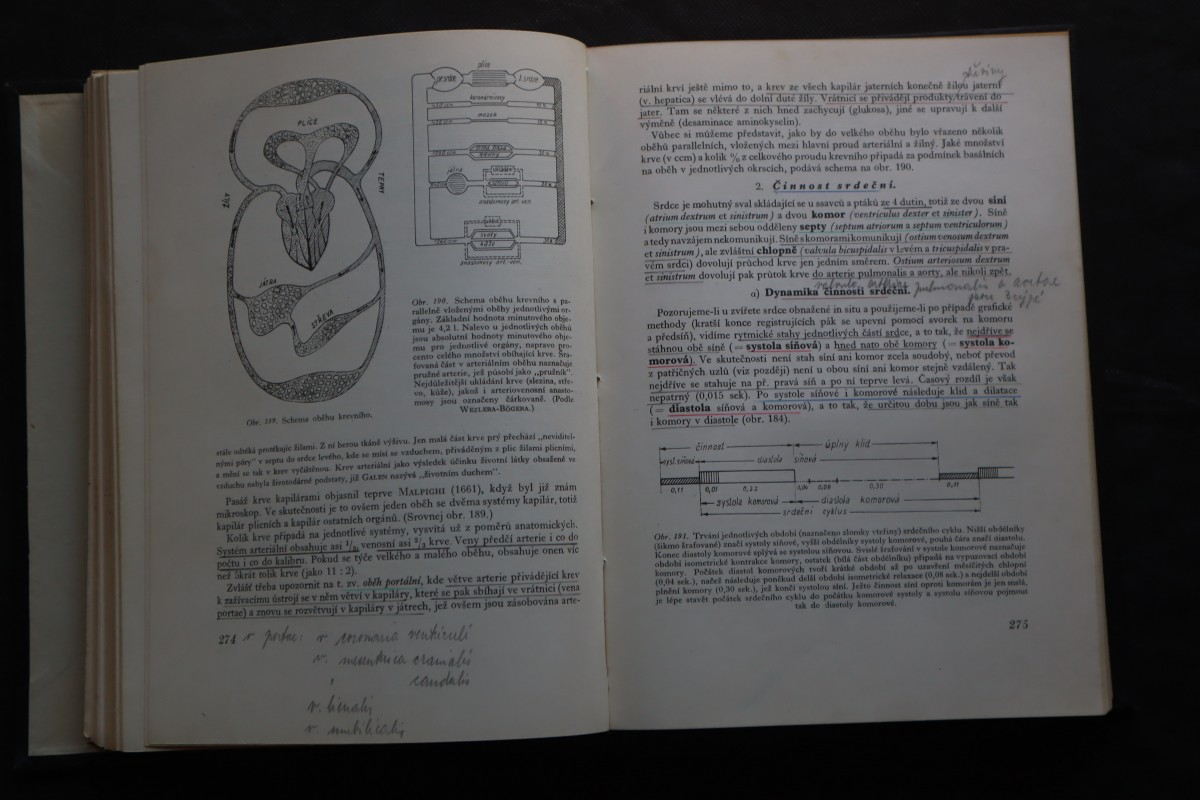 PLÍCE
ŽÍLY
TEPNY
JÁTRA
STŘEVA
Obr. 189. Schema oběhu krevního.
plíce
pr. srdce
l. srdce
koronár. cévy
mozek
játra
anastomosy art. ven.
svaly
kůže
anastomosy art. ven.
Obr. 190. Schema oběhu krevního s pa-
rallelně vloženými oběhy jednotlivými or-
gány. Základní hodnota minutového obje-
mu je 4,2 l. Nalevo u jednotlivých oběhů
jsou absolutní hodnoty minutového obje-
mu pro jednotlivé orgány, napravo pro-
cento celého množství obíhající krve. Šra-
fovaná část v arteriálním oběhu naznačuje
pružné arterie, jež působí jako „pružník".
Nejdůležitější ukládání krve (slezina, stře-
vo, kůže), jakož i arteriovenosní anasto-
mosy jsou označeny čárkovaně. (Podle
WEZLERA-BÖGERA.)
stále odkrytá protékajíc žilami. Z ní berou tkáně výživu. Jen malá část krve prý přechází „neviditel-
nými póry" v septu do srdce levého, kde se mísí se vzduchem, přiváděným z plic žilami plicními,
a mění se tak v krev vyčištěnou. Krev arteriální jako výsledek účinku životní látky obsažené ve
vzduchu nebyla životodárné podstaty, již GALEN nazývá „životním duchem".
Pasáž krve kapilárami objasnil teprve MALPIGHI (1661), když byl již znám
mikroskop. Ve skutečnosti je to ovšem jeden oběh se dvěma systémy kapilár, totiž
kapilár plicních a kapilár ostatních orgánů. (Srovnej obr. 189.)
Kolik krve připadá na jednotlivé systémy, vysvítá už z poměrů anatomických.
Systém arteriální obsahuje asi 1/3, venosní asi 2/3 krve. Veny předčí arterie i co do
počtu i co do kalibru. Pokud se týče velkého a malého oběhu, obsahuje onen víc
než 5krát tolik krve (jako 11 : 2).
Zvlášť třeba upozornit na t. zv. oběh portální, kde větve arterie přivádějící krev
k zažívacímu ústrojí se v něm větví v kapiláry, které se pak sbíhají ve vrátnici (vena
portae) a znovu se rozvětvují v kapiláry v játrech, jež ovšem jsou zásobována arte-
274 v portae: v coronaria ventriculi
v. mesenterica cranialis
caudalis
v. lienalis
v umbilicalis
riální krví ještě mimo to, a krev ze všech kapilár jaterních konečně žilou jaterní
(v. hepatica) se vlévá do dolní duté žíly. Vrátnicí se přivádějí produkty trávení do
jater. Tam se některé z nich hned zachycují (glukosa), jiné se upravují k další
výměně (desaminace aminokyselin).
Vůbec si můžeme představit, jako by do velkého oběhu bylo vřazeno několik
oběhů parallelních, vložených mezi hlavní proud arteriální a žilný. Jaké množství
krve (v ccm) a kolik % z celkového proudu krevního připadá za podmínek basálních
na oběh v jednotlivých okrscích, podává schema na obr. 190.
2. Činnost srdeční.
Srdce je mohutný sval skládající se u ssavců a ptáků ze 4 dutin, totiž ze dvou síní
(atrium dextrum et sinistrum) a dvou komor (ventriculus dexter et sinister). Síně
i komory jsou mezi sebou odděleny septy (septum atriorum a septum ventriculorum)
a tedy navzájem nekomunikují. Síně s komorami komunikují (ostium venosum dextrum
et sinistrum), ale zvláštní chlopně (valvula bicuspidalis v levém a tricuspidalis v pra-
vém srdci) dovolují průchod krve jen jedním směrem. Ostium arteriosum dextrum
et sinistrum dovolují pak průtok krve do arterie pulmonalis a aorty, ale nikoli zpět.
pulmonalis a aortae
a) Dynamika činnosti srdeční.
Pozorujeme-li u zvířete srdce obnažené in situ a použijeme-li po případě grafické
methody (kratší konce registrujících pák se upevní pomocí svorek na komoru
a předsíň), vidíme rytmické stahy jednotlivých částí srdce, a to tak, že nejdříve se
stáhnou obě síně (= systola síňová) a hned nato obě komory (= systola ko-
morová). Ve skutečnosti není stah síní ani komor zcela soudobý, neboť převod
z patřičných uzlů (viz později) není u obou síní ani komor stejně vzdálený. Tak
nejdříve se stahuje na př. pravá síň a po ní teprve levá. Časový rozdíl je však
nepatrný (0,015 sek). Po systole síňové i komorové následuje klid a dilatace
(= diastola síňová a komorová), a to tak, že určitou dobu jsou jak síně tak
i komory v diastole (obr. 184).
činnost
úplný klid
syst. síňová
diastola síňová
0,11
0,01
0,22
0,04
0,08
0,30
0,11
systola komorová
diastola komorová
srdeční cyklus
Obr. 191. Trvání jednotlivých období (naznačeno zlomky vteřiny) srdečního cyklu. Nižší obdélníky
(šikmo šrafované) značí systoly síňové, vyšší obdélníky systoly komorové, pouhá čára značí diastolu.
Konec diastoly komorové splývá se systolou síňovou. Svislé šrafování v systole komorové naznačuje
období isometrické kontrakce komory, ostatek (bílá část obdélníku) připadá na vypuzovací období
komory. Počátek diastol komorových tvoří krátké období až po uzavření měsíčitých chlopní
(0,04 sek.), načež následuje poněkud delší období isometrické relaxace (0,08 sek.) a nejdelší období
plnění komory (0,30 sek.), jež končí systolou síní. Ježto činnost síní oproti komorám je jen malá,
je lépe stavět počátek srdečního cyklu do počátku komorové systoly a systolu síňovou pojmout
tak do diastoly komorové.
275